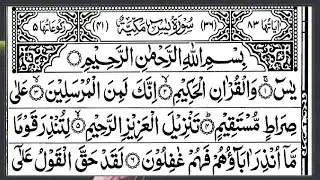 اٰیَاتُهَا ٨٣ (٣٦) سُوْرَةُ یٰسٓ مَكِّیَّةٌ (٤١) رُكُوْعَاتُهَا ٥
بِسْمِ اللهِ الرَّحْمٰنِ الرَّحِیْمِ
یٰسٓ ۝ وَالْقُرْاٰنِ الْحَكِیْمِ ۝ اِنَّكَ لَمِنَ الْمُرْسَلِیْنَ ۝ عَلٰی
صِرَاطٍ مُّسْتَقِیْمٍ ۝ تَنْزِیْلَ الْعَزِیْزِ الرَّحِیْمِ ۝ لِتُنْذِرَ قَوْمًا
مَّاۤ اُنْذِرَ اٰبَآؤُهُمْ فَهُمْ غٰفِلُوْنَ ۝ لَقَدْ حَقَّ الْقَوْلُ عَلٰۤی